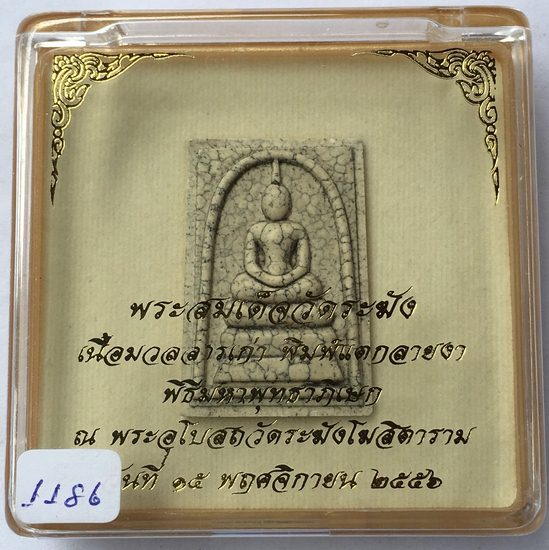 พระสมเด็จวัดระฆัง
เนื้อมวลสารเก่า พิมพ์แตกลายงา
พิธีมหาพุทธาภิเษก
ณ พระอุโบสถวัดระฆังโฆสิตาราม
วันที่ ๑๕ พฤศจิกายน ๒๕๕๖